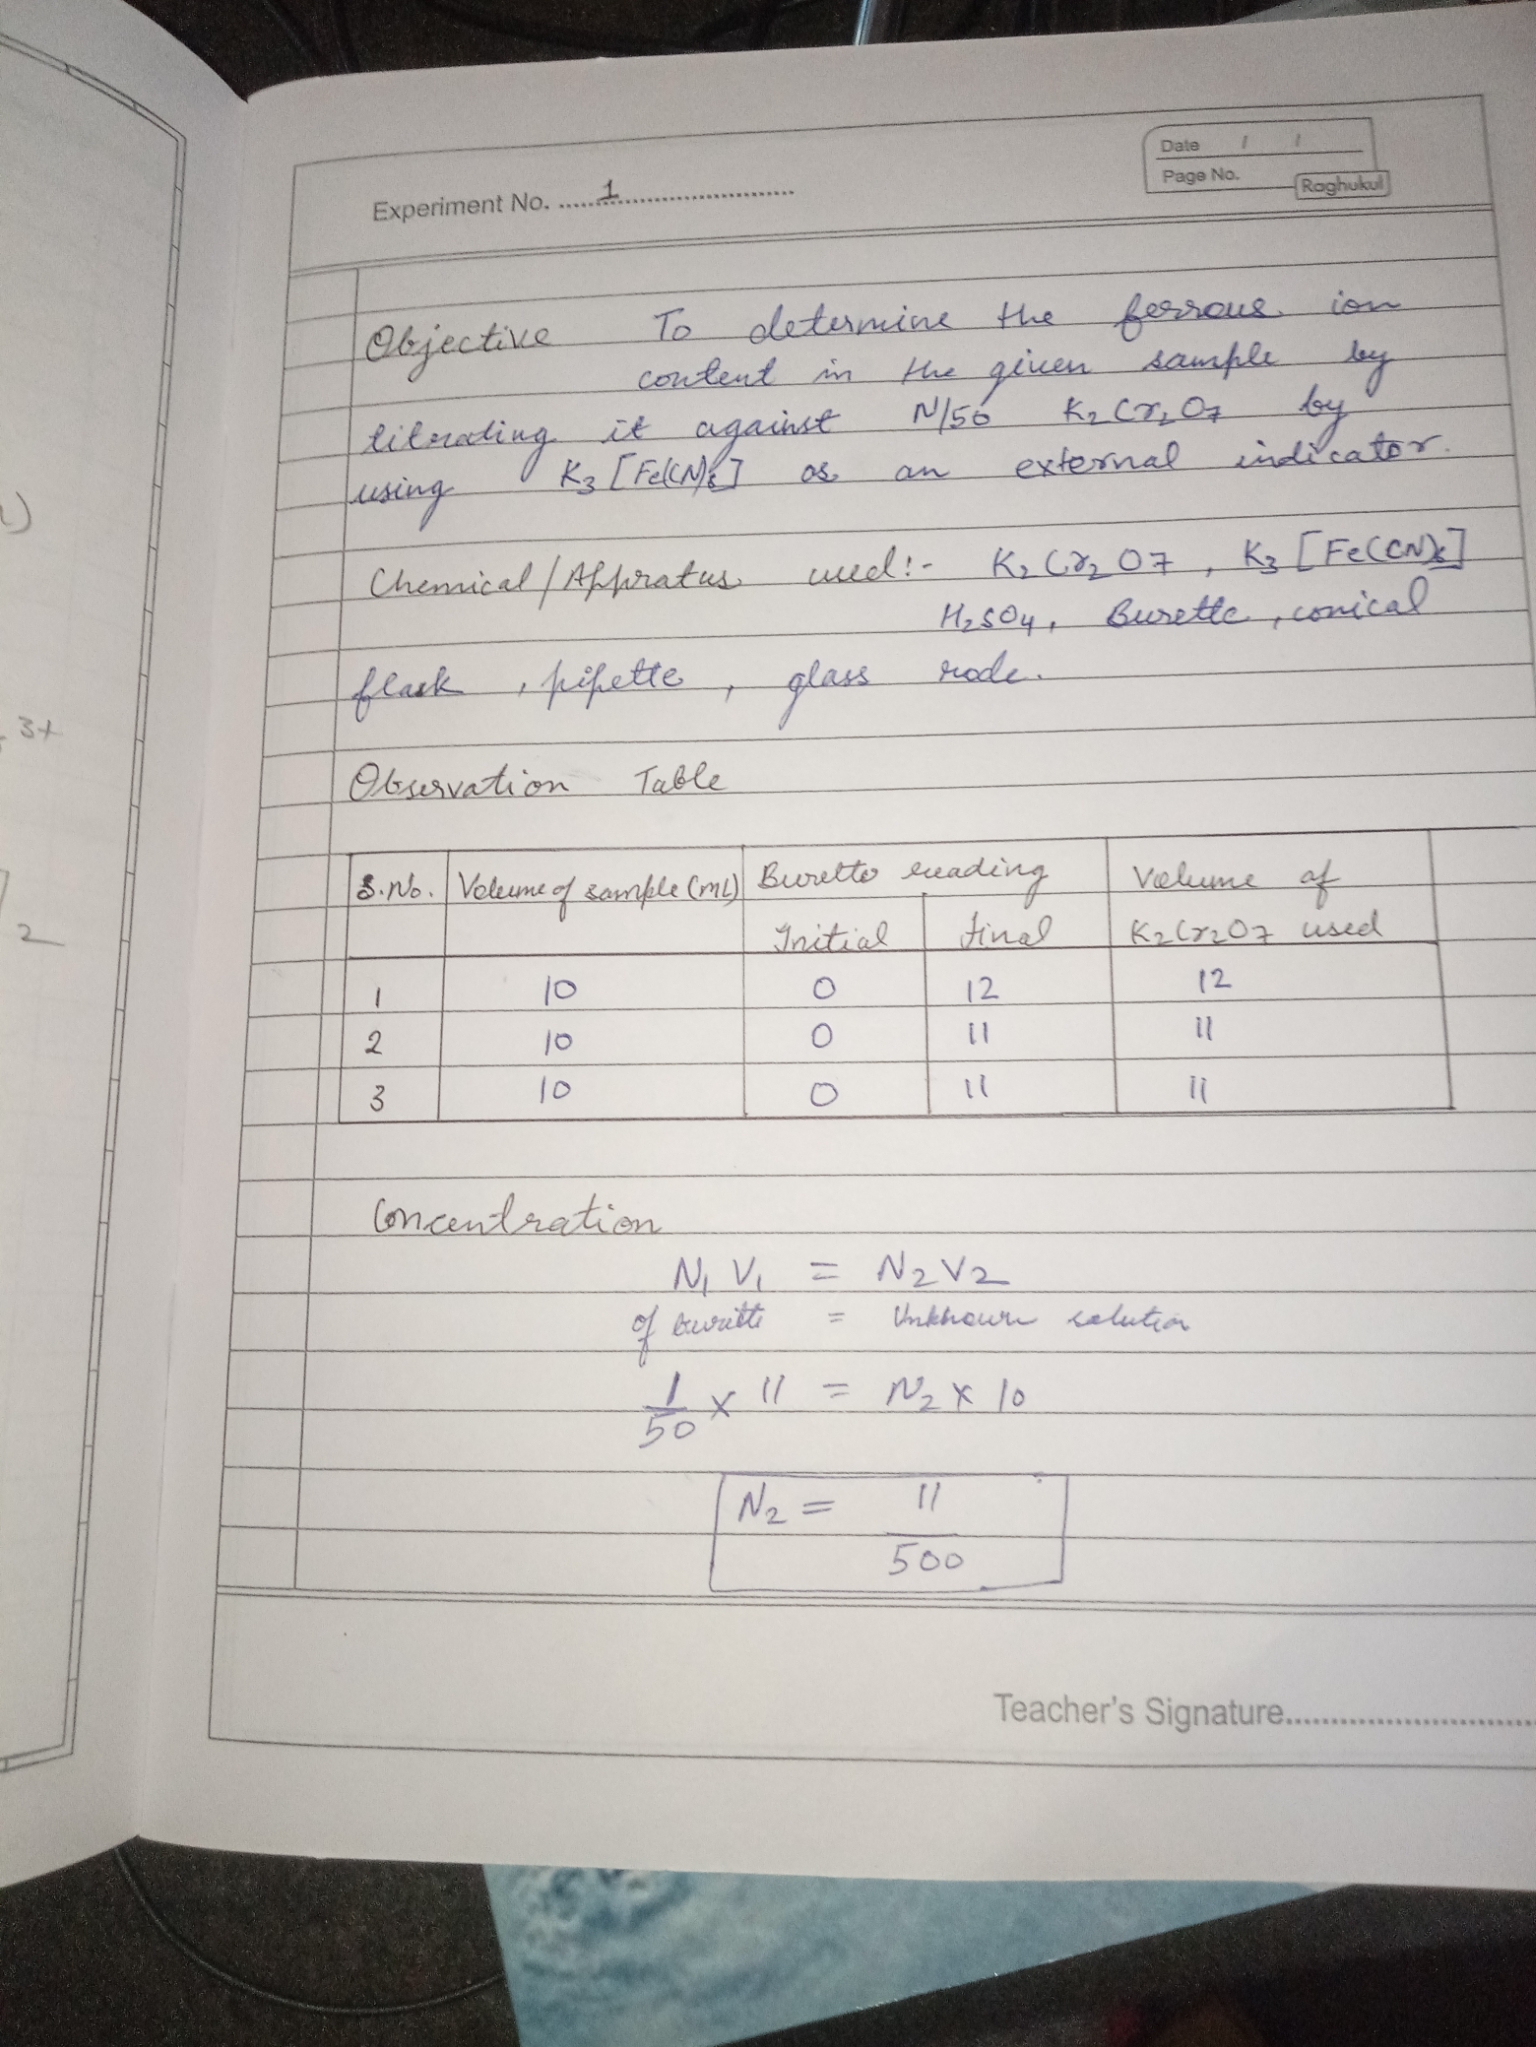 Date / /
Page No.
Raghukul
Experiment No. ....1....
Objective To determine the ferrous ion
content in the given sample by
titrating it against N/50 K2Cr2O7 by
using K3[Fe(CN)6] as an external indicator.
Chemical/Appratus used:- K2Cr2O7, K3[Fe(CN)6]
H2SO4, Burette, conical
flask, pipette, glass rode.
Observation Table
S.No. Volume of sample (mL) Burette reading Volume of
Initial final K2Cr2O7 used
1 10 0 12 12
2 10 0 11 11
3 10 0 11 11
Concentration
N1V1 = N2V2
of burette = Unknown solution
1/50 x 11 = N2 x 10
N2 = 11/500
Teacher's Signature..........
3+
2